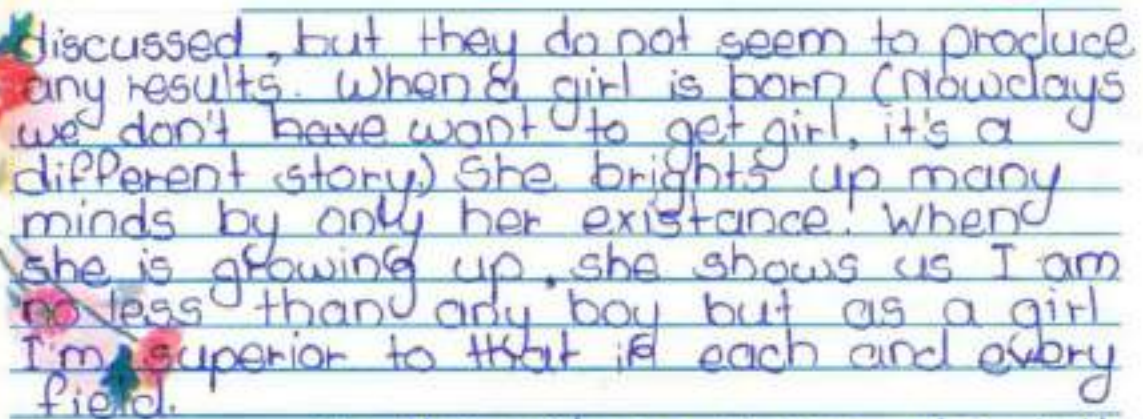 discussed, but they do not seem to produce
any results. When a girl is born (Nowdays
we don't have want to get girl, it's a
different story.) She brights up many
minds by only her existance. When
she is growing up, she shows us I am
no less than any boy but as a girl
I'm superior to that in each and every
field.